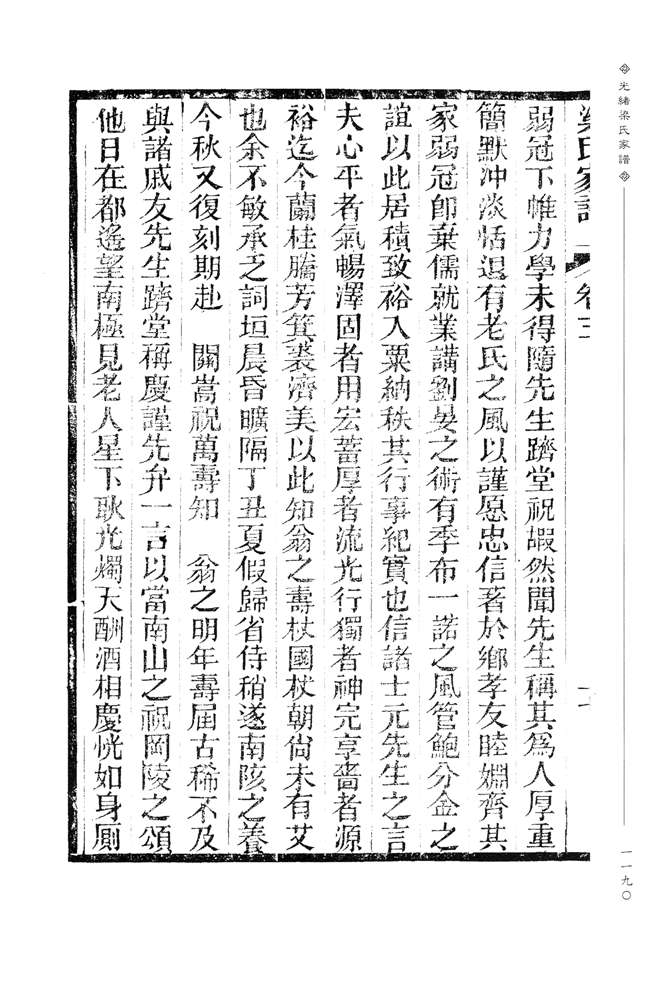 光緒梁氏家譜
一一九〇
梁氏家譜 卷三
弱冠下帷力學未得隨先生躋堂祝嘏然聞先生稱其為人厚重
簡默冲淡恬退有老氏之風以謹愿忠信著於鄉孝友睦婣齊其
家弱冠卽棄儒就業講劉晏之術有季布一諾之風管鮑分金之
誼以此居積致裕入粟納秩其行事紀實也信諸士元先生之言
夫心平者氣暢澤固者用宏蓄厚者流光行獨者神完享嗇者源
裕迄今蘭桂騰芳箕裘濟美以此知翁之壽杖國杖朝尙未有艾
也余不敏承乏詞垣晨昏曠隔丁丑夏假歸省侍稍遂南陔之養
今秋又復刻期赴 闕嵩祝萬壽知 翁之明年壽屆古稀不及
與諸戚友先生躋堂稱慶謹先弁一言以當南山之祝岡陵之頌
他日在都遙望南極見老人星下耿光燭天酬酒相慶恍如身厠